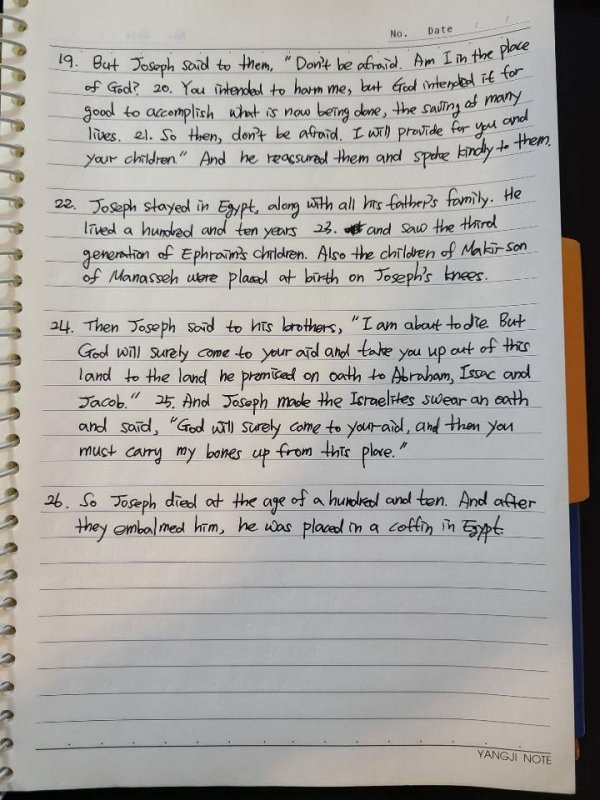 No. Date / /
19. But Joseph said to them, "Don't be afraid. Am I in the place
of God? 20. You intended to harm me, but God intended it for
good to accomplish what is now being done, the saving of many
lives. 21. So then, don't be afraid. I will provide for you and
your children." And he reassured them and spoke kindly to them.
22. Joseph stayed in Egypt, along with all his father's family. He
lived a hundred and ten years 23. and saw the third
generation of Ephraim's children. Also the children of Makir son
of Manasseh were placed at birth on Joseph's knees.
24. Then Joseph said to his brothers, "I am about to die. But
God will surely come to your aid and take you up out of this
land to the land he promised on oath to Abraham, Issac and
Jacob." 25. And Joseph made the Israelites swear an oath
and said, "God will surely come to your aid, and then you
must carry my bones up from this place."
26. So Joseph died at the age of a hundred and ten. And after
they embalmed him, he was placed in a coffin in Egypt.
YANGJI NOTE